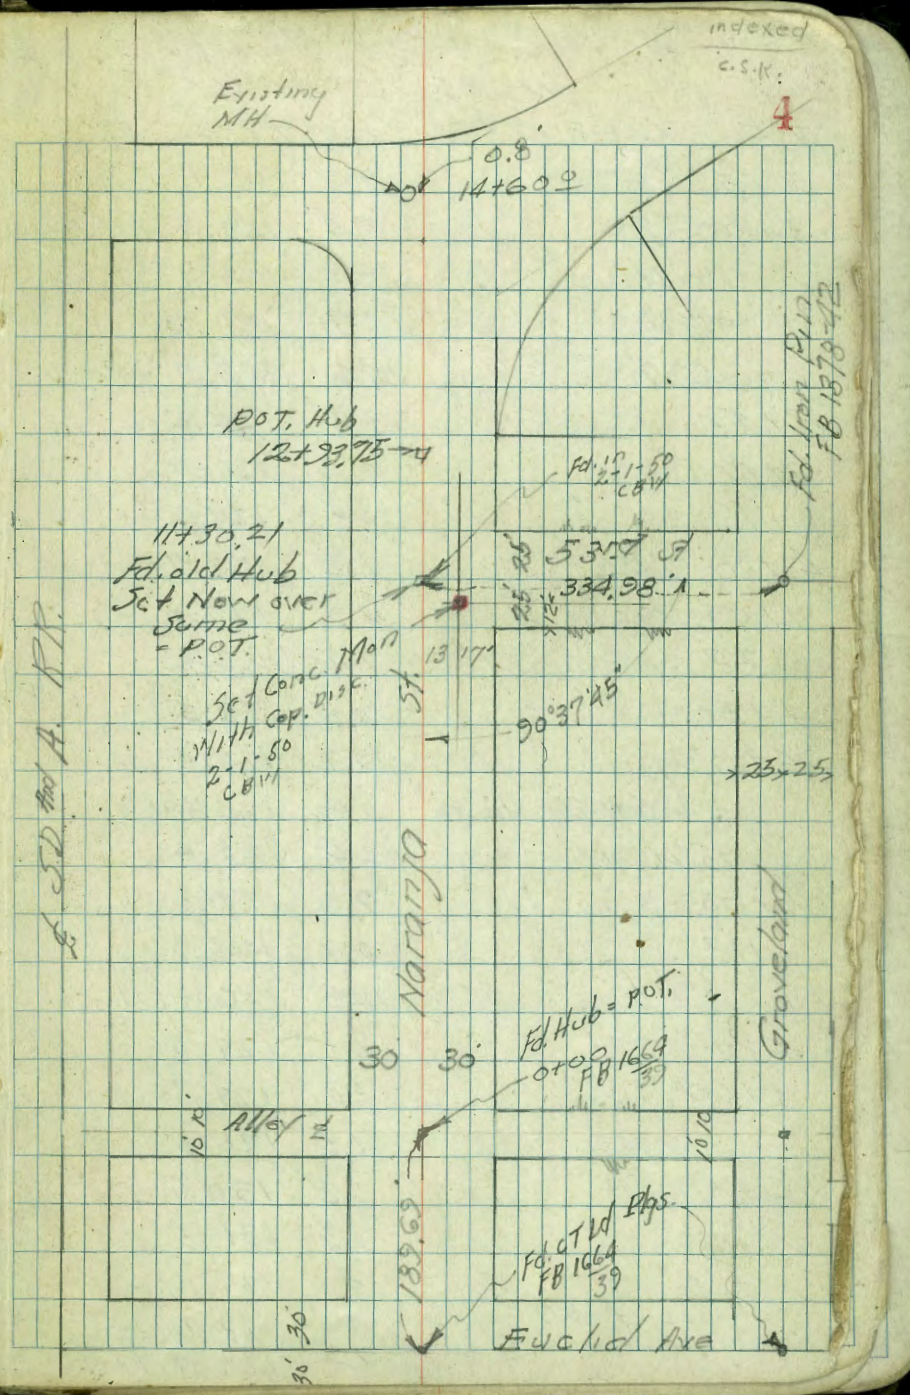 indexed
C.S.K.
4
Existing
MH
0.8'
14+60.0
Fd. Iron Pin
FB 1878-42
P.O.T. Hub
12+93.75
Fd. in
2-1-50
CBW
11+30.21
Fd. old Hub
Set New over
Same
= P.O.T.
25' 25'
53rd St
334.98'
12'
Set Conc. Mon
With Cop. Disc.
2-1-50
CBW
13 17'
90°37'45"
25 25
℄ S.D. and A. R.R.
Naranja St.
Groveland
30 30'
Fd. Hub = P.O.T.
0+00
FB 1664
39
10' 10'
Alley
10' 10'
189.69'
Fd. C.T. Ld Plgs.
FB 1664
39
30' 30'
Euclid Ave